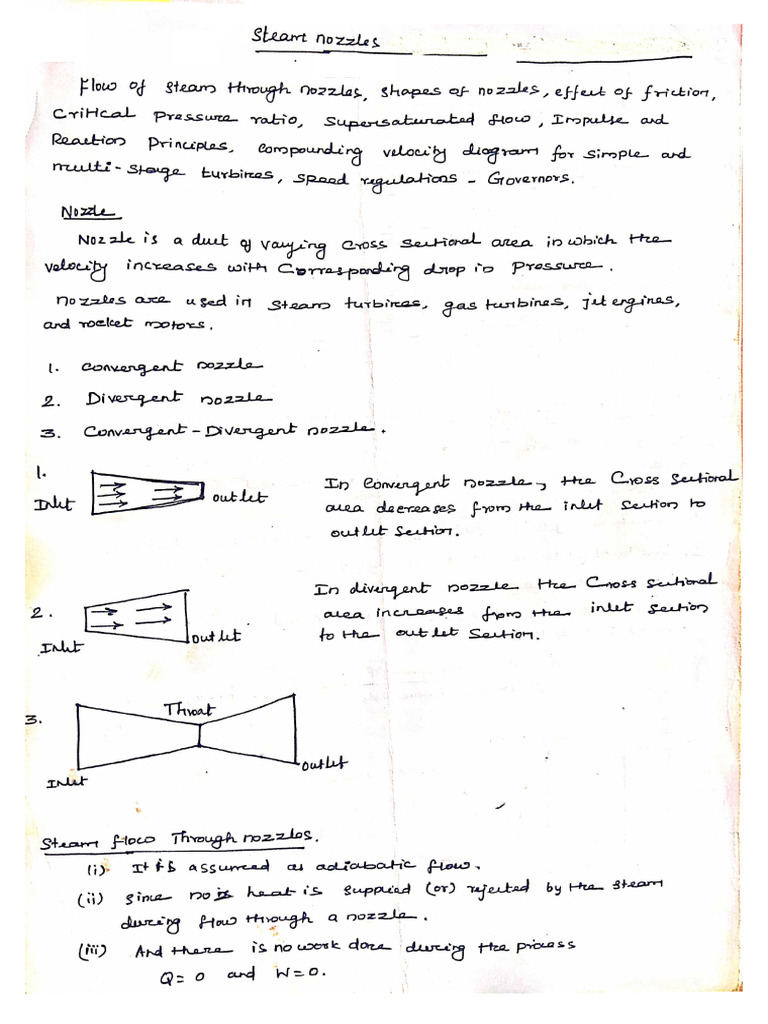 Steam nozzles
Flow of steam through nozzles, shapes of nozzles, effect of friction,
Critical Pressure ratio, Supersaturated flow, Impulse and
Reaction Principles, compounding velocity diagram for simple and
multi-stage turbines, speed regulations - Governors.
Nozzle
Nozzle is a duct of varying cross sectional area in which the
velocity increases with corresponding drop in pressure.
Nozzles are used in steam turbines, gas turbines, jet engines,
and rocket motors.
1. Convergent nozzle
2. Divergent nozzle
3. Convergent - Divergent nozzle.
1.
Inlet
outlet
In Convergent nozzle, the Cross Sectional
area decreases from the inlet section to
outlet section.
2.
Inlet
outlet
In divergent nozzle the Cross sectional
area increases from the inlet section
to the outlet section.
3.
Throat
Inlet
outlet
Steam flow Through nozzles.
(i) It is assumed as adiabatic flow.
(ii) since no heat is supplied (or) rejected by the steam
during flow through a nozzle.
(iii) And there is no work done during the process
Q = 0 and W = 0.